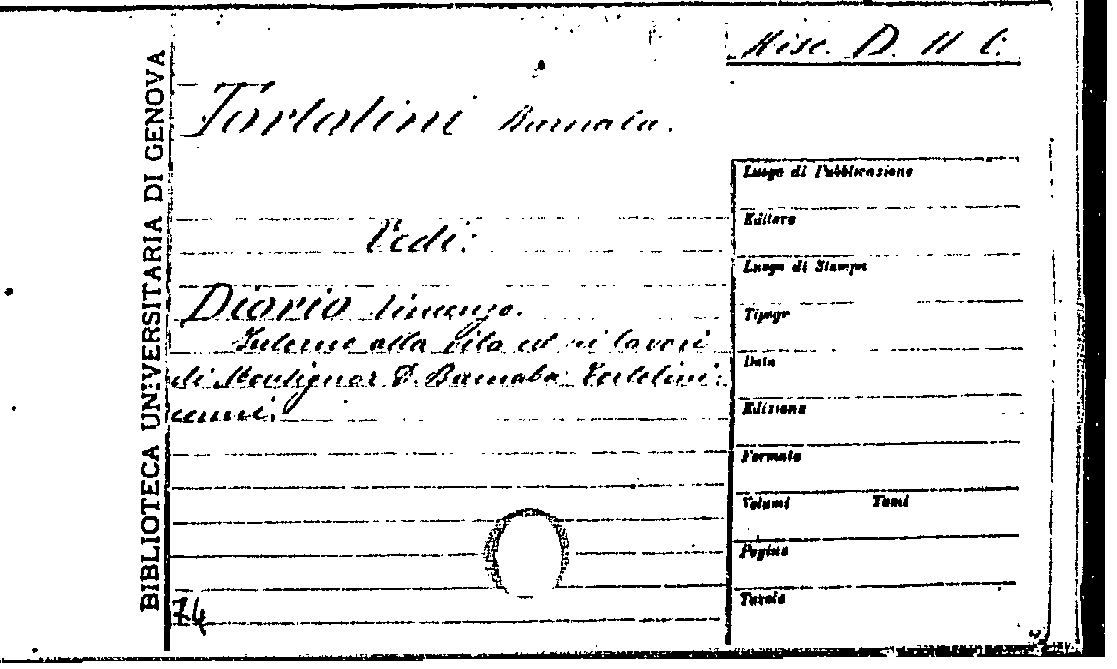 Misc. D. 11 6.
Tortolini Barnaba.
Vedi:
Diorio Vincenzo.
Intorno alla vita ed ai lavori
di Monsignor D. Barnaba Tortolini:
cenni.
74
BIBLIOTECA UNIVERSITARIA DI GENOVA
Luogo di Pubblicazione
Editore
Luogo di Stampa
Tipogr
Data
Edizione
Formato
Volumi Tomi
Pagine
Tavole